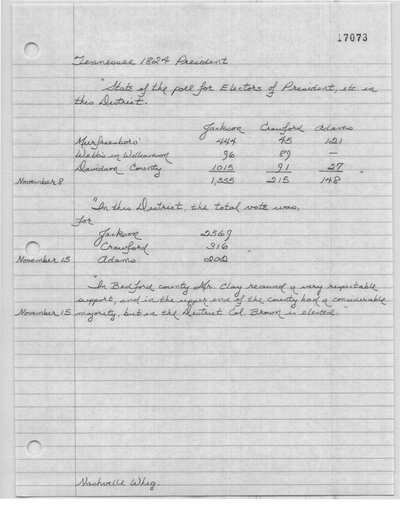 17073
Tennessee 1824 President
"State of the poll for Electors of President, etc in
this District.
Jackson Crawford Adams
Murfreesboro' 444 45 121
Webb's in Williamson 96 89 —
Davidson County 1015 91 27 "
November 8 1,555 215 148
"In this District, the total vote was,
For
Jackson 2569
Crawford 316
November 15 Adams 202 "
"In Bedford county Mr. Clay received a very respectable
support, and in the upper end of the county had a considerable
November 15 majority, but in the District Col. Brown is elected."
Nashville Whig.